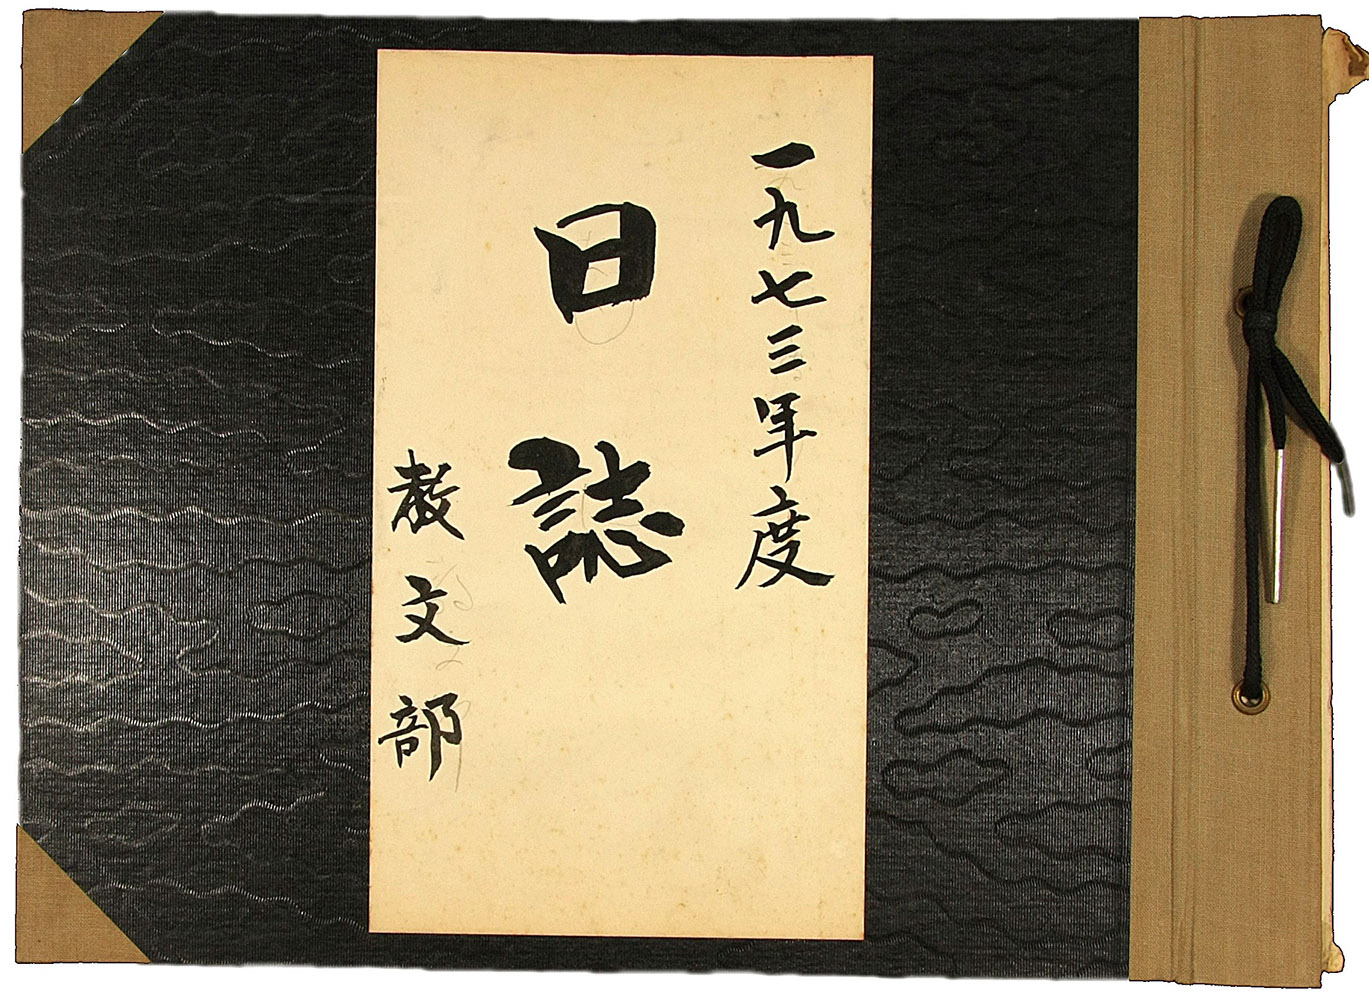 一九七三年度
日誌
教文部